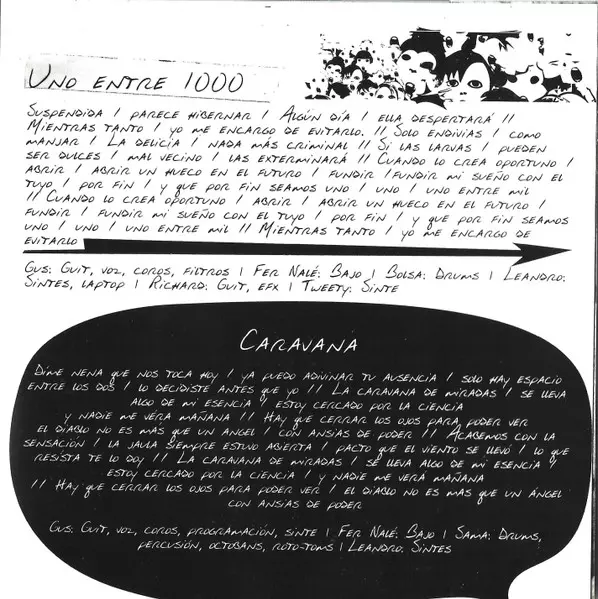 Uno entre 1000
Suspendida / parece hibernar / Algún día / ella despertará //
Mientras tanto / yo me encargo de evitarlo. // Solo endivias / como
manjar / La delicia / nada más criminal // Si las larvas / pueden
ser dulces / mal vecino / las exterminará // Cuando lo crea oportuno /
abrir / abrir un hueco en el futuro / fundir / fundir mi sueño con el
tuyo / por fin / y que por fin seamos uno / uno / uno entre mil
// Cuando lo crea oportuno / abrir / abrir un hueco en el futuro /
fundir / fundir mi sueño con el tuyo / por fin / y que por fin seamos
uno / uno / uno entre mil // Mientras tanto / yo me encargo de
evitarlo
Gus: Guit, voz, coros, filtros | Fer Nalé: Bajo | Bolsa: Drums | Leandro:
Sintes, laptop | Richard: Guit, efx | Tweety: Sinte
Caravana
Dime nena que nos toca hoy / ya puedo adivinar tu ausencia / solo hay espacio
entre los dos / lo decidiste antes que yo // La caravana de miradas / se lleva
algo de mi esencia / estoy cercado por la ciencia
y nadie me verá mañana // Hay que cerrar los ojos para poder ver
el diablo no es más que un ángel / con ansias de poder // Acabemos con la
sensación / la jaula siempre estuvo abierta / pacto que el viento se llevó / lo que
resista te lo doy // La caravana de miradas / se lleva algo de mi esencia /
estoy cercado por la ciencia / y nadie me verá mañana
// Hay que cerrar los ojos para poder ver / el diablo no es más que un ángel
con ansias de poder
Gus: Guit, voz, coros, programación, sinte | Fer Nalé: Bajo | Sama: Drums,
percusión, octobans, roto-toms | Leandro: Sintes